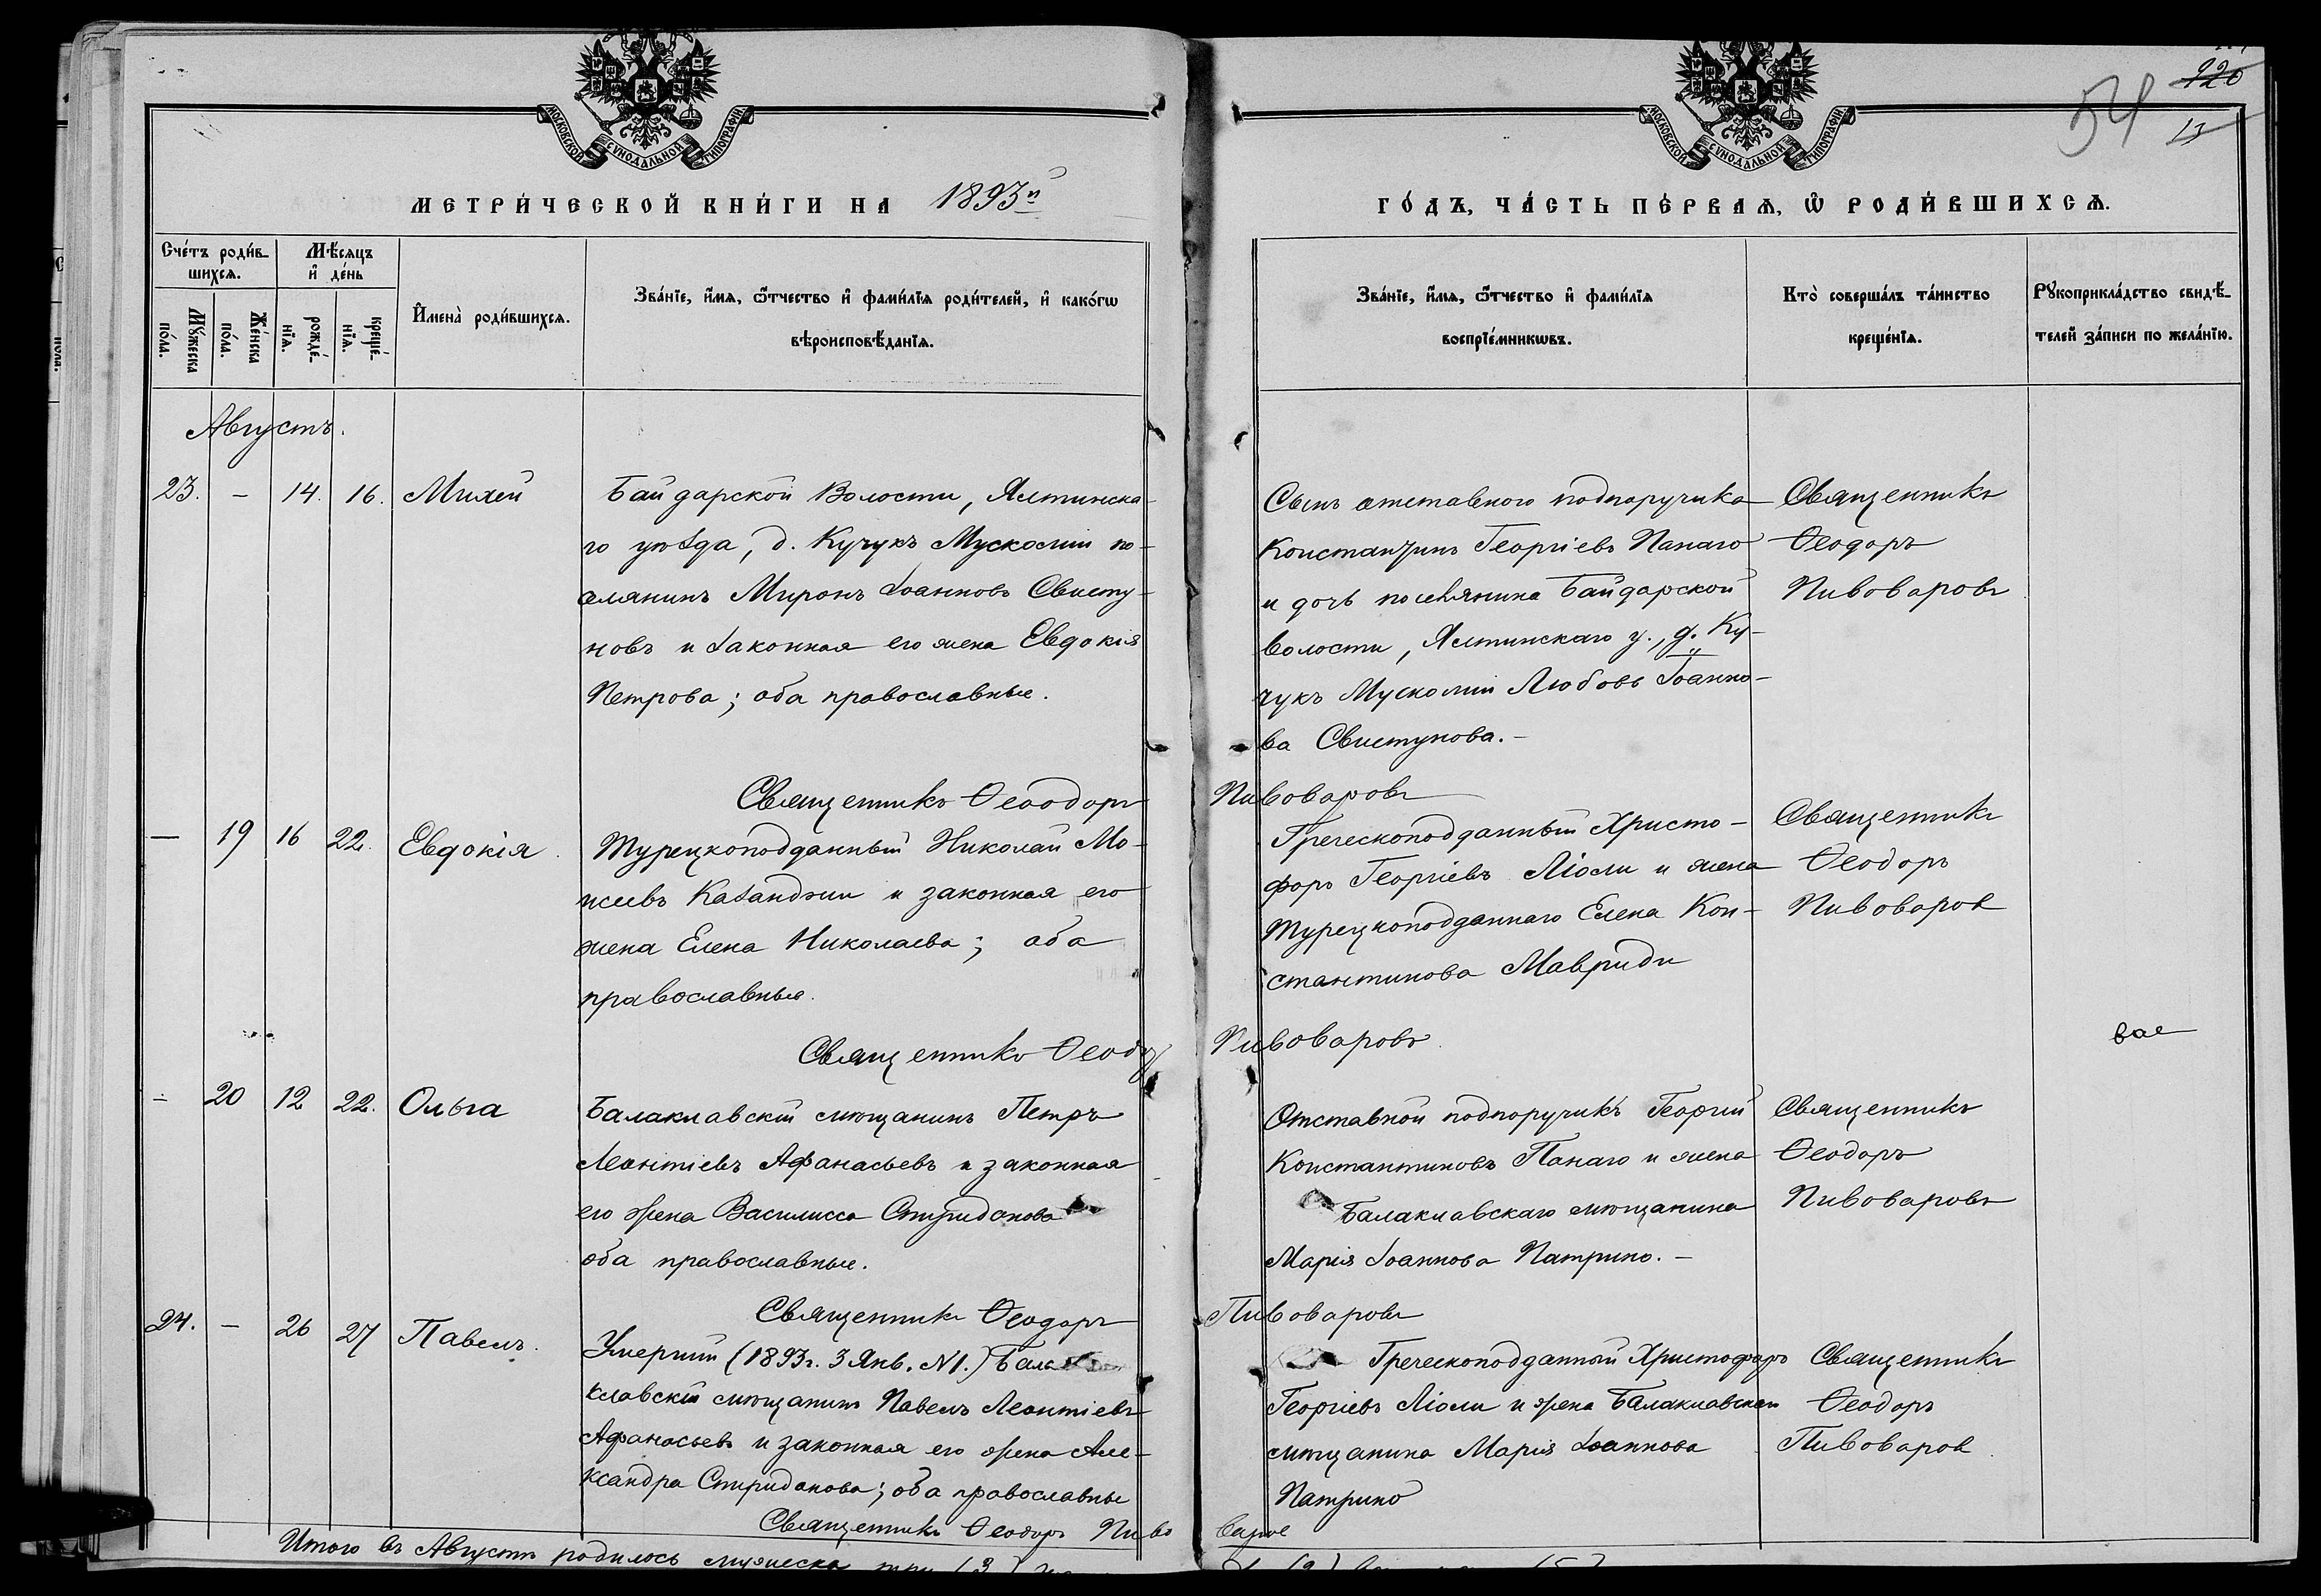 МОСКОВСКОЙ СѴНОДАЛЬНОЙ ТИПОГРАФІИ.
МЕТРИ́ЧЕСКОЙ КНИ́ГИ НА 1893й
Сче́тъ роди́в-
шихсѧ.
Мѣ́сѧцъ
и҆ де́нь
Мꙋ́жеска
по́ла.
Же́нска
по́ла.
рожде́-
нїѧ.
креще́-
нїѧ.
И҆мена̀ роди́вшихсѧ.
Зва́нїе, и҆́мѧ, ѻ҆́тчество и҆ фами́лїѧ роди́телей, и҆ како́гѡ
вѣроисповѣ́данїѧ.
Августъ.
23. – 14. 16. Михей
Байдарской Волости, Ялтинска-
го уѣзда, д. Кучукъ Мускомии по-
селянинъ Миронъ Іоанновъ Свисту-
новъ и законная его жена Евдокія
Петрова; оба православные.
Священникъ Ѳеодоръ
— 19 16 22. Евдокія.
Турецкоподданный Николай Мо-
исеевъ Казанджи и законная его
жена Елена Николаева; оба
православные.
Священникъ Ѳеодоръ
– 20 12 22. Ольга
Балаклавскій мѣщанинъ Петръ
Леонтіевъ Афанасьевъ и законная
его жена Василисса Спиридонова
оба православные.
Священникъ Ѳеодоръ
24. – 26 27 Павелъ.
Умерший (1893г. 3 Янв. N 1.) Бала
клавскій мѣщанинъ Павелъ Леонтіевъ
Афанасьевъ и законная его жена Але-
ксандра Спиридонова; оба православные
Священникъ Ѳеодоръ Пиво
Итого въ Августѣ родилось мужеска три (3)
МОСКОВСКОЙ СѴНОДАЛЬНОЙ ТИПОГРАФІИ.
220
54
13
ГО́ДЪ, ЧА́СТЬ ПЕ́РВАѦ, Ѡ҆ РОДИ́ВШИХСѦ.
Зва́нїе, и҆́мѧ, ѻ҆́тчество и҆ фами́лїѧ
воспрїе́мникѡвъ.
Кто̀ соверша́лъ та́инство
креще́нїѧ.
Рꙋкоприкла́дство свидѣ́-
телей за́писи по жела́нїю.
Сынъ отставного подпоручика
Константинъ Георгіевъ Панаго
и дочь поселянина Байдарской
волости, Ялтинскаго у., д. Ку-
чукъ Мускомии Любовь Іоанно-
ва Свистунова.–
Священникъ
Ѳеодоръ
Пивоваровъ
Пивоваровъ
Греческоподданный Христо-
форъ Георгіевъ Ліоли и жена
Турецкоподданнаго Елена Кон-
стантинова Мавриди
Священникъ
Ѳеодоръ
Пивоваров
Пивоваровъ.
вае
Отставной подпоручикъ Георгий
Константиновъ Панаго и жена
Балаклавскаго мѣщанина
Марія Іоаннова Патрино.–
Священникъ
Ѳеодоръ
Пивоваровъ
Пивоваровъ
Греческоподданный Христофоръ
Георгіевъ Ліоли и жена Балаклавскаго
мѣщанина Марія Іоаннова
Патрино
Священникъ
Ѳеодоръ
Пивоваров
варов